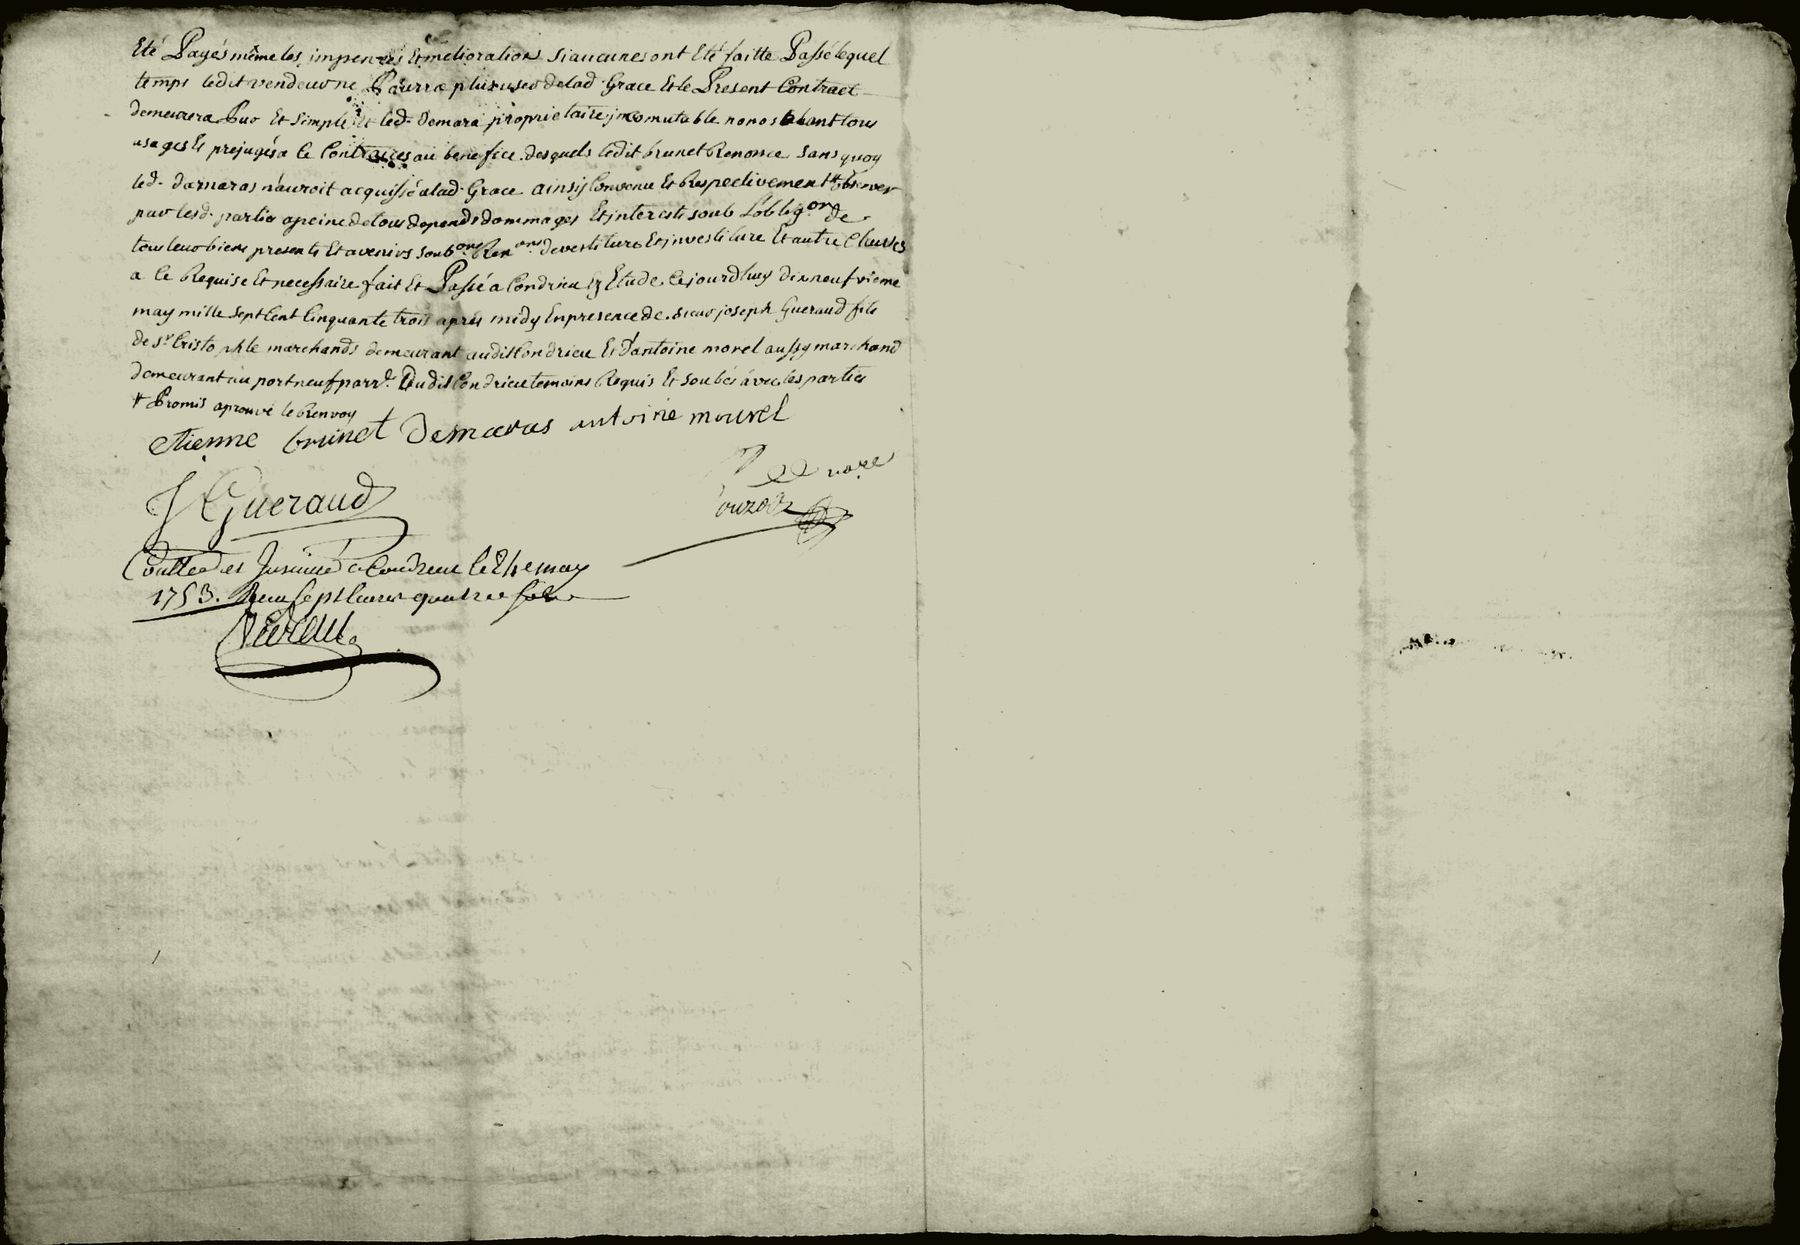 Eté Payés même les impenses Et melioration si aucunes ont Eté faitte Passé lequel
temps ledit vendeur ne Pourra plus user delad. Grace Et le Present Contract
demeurera Pur Et Simple Et led. demara proprietaire incomutable nonostabant tous
usages Et prejugés a ce Contraires au benefice desquels ledit brunet Renonce Sans quoy
led. darnaras n'auroit acquissé alad. Grace ainsij Convenu Et Respectivement # observer
par lesd. partie a peine de tous depends dommages Et interests soub L'oblig.on de
tous leur biens presents Et avenirs soub.ons Ren.ons devestiture Et investiture Et autre Clauses
a ce Requise Et necessaire fait Et Passé a Condrieu Ez Etude Cejourdhuy dixneufvieme
may mille sept Cent Cinquante trois apres midy En presence de sieur joseph Gueraud fils
de Sr Cristophle marchands demeurant audit Condrieu Et d'antoine morel aussy marchand
demeurant au port neuf parr.e Dudit Condrieu temoins Requis Et soub.és avec les parties
# Promis aprouvé le Renvoy
Etienne brunet Demaras antoine mourel
J Gueraud
no.re
Con.lle et Insinué a Condrieu le 24e may
1753. Receu sept livres quatre sols